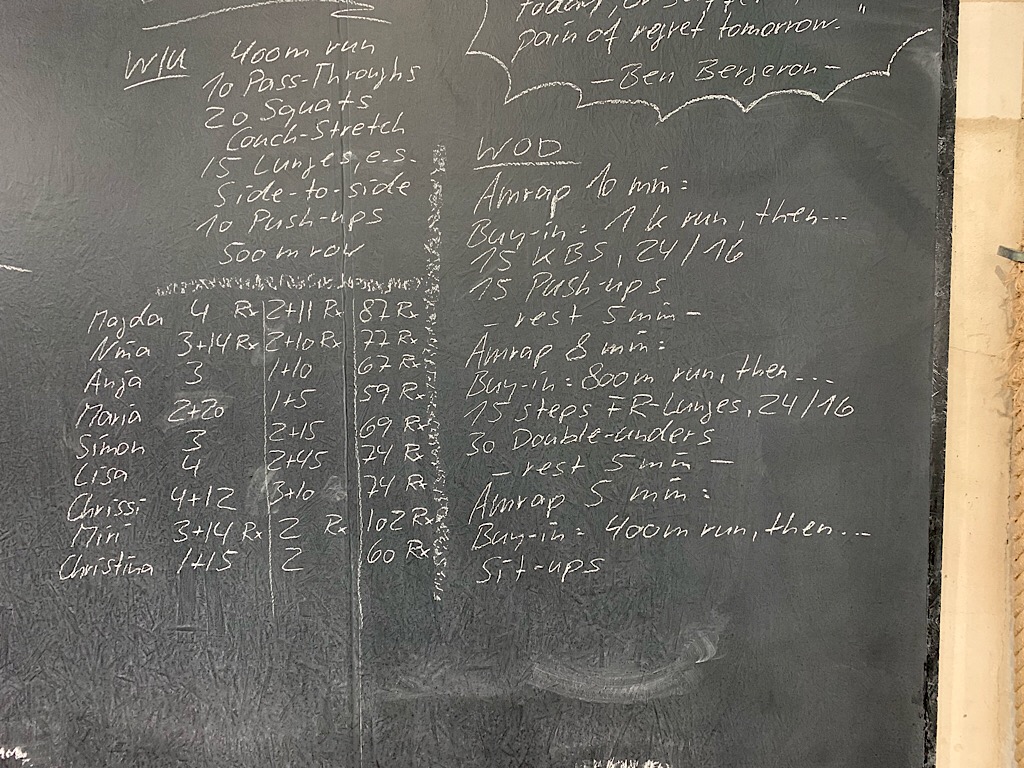 today, or suffer
pain of regret tomorrow."
- Ben Bergeron -
W/U 400m run
10 Pass-Throughs
20 Squats
Couch-Stretch
15 Lunges, e.s.
Side-to-side
10 Push-ups
500m row
Magda 4 Rx 2+11 Rx 87 Rx
Nina 3+14 Rx 2+10 Rx 77 Rx
Anja 3 1+10 67 Rx
Maria 2+20 1+5 59 Rx
Simon 3 2+15 69 Rx
Lisa 4 2+45 74 Rx
Chrissi 4+12 3+10 74 Rx
Miri 3+14 Rx 2 Rx 102 Rx
Christina 1+15 2 60 Rx
WOD
Amrap 10 min:
Buy-in: 1k run, then...
15 KBS, 24/16
15 Push-ups
- rest 5 min -
Amrap 8 min:
Buy-in: 800m run, then...
15 steps FR-Lunges, 24/16
30 Double-unders
- rest 5 min -
Amrap 5 min:
Buy-in: 400m run, then...
Sit-ups